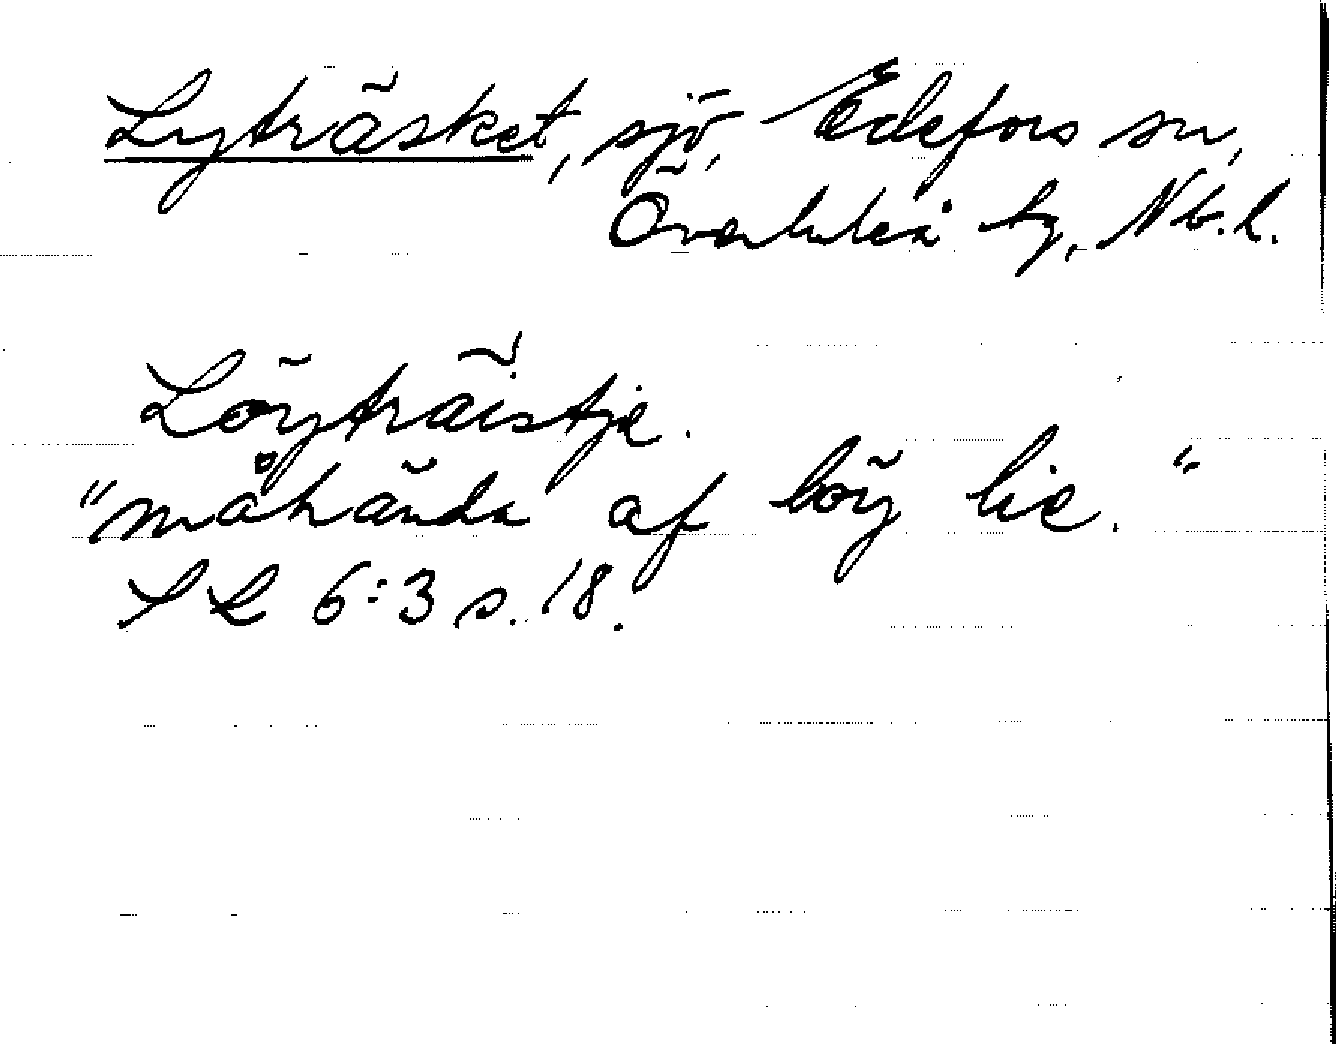 Lyträsket, sjö, Edefors sn,
Överluleå tg, Nb.l.
Löyträistje.
"måhända af löy lie."
SL 6:3 s. 18.